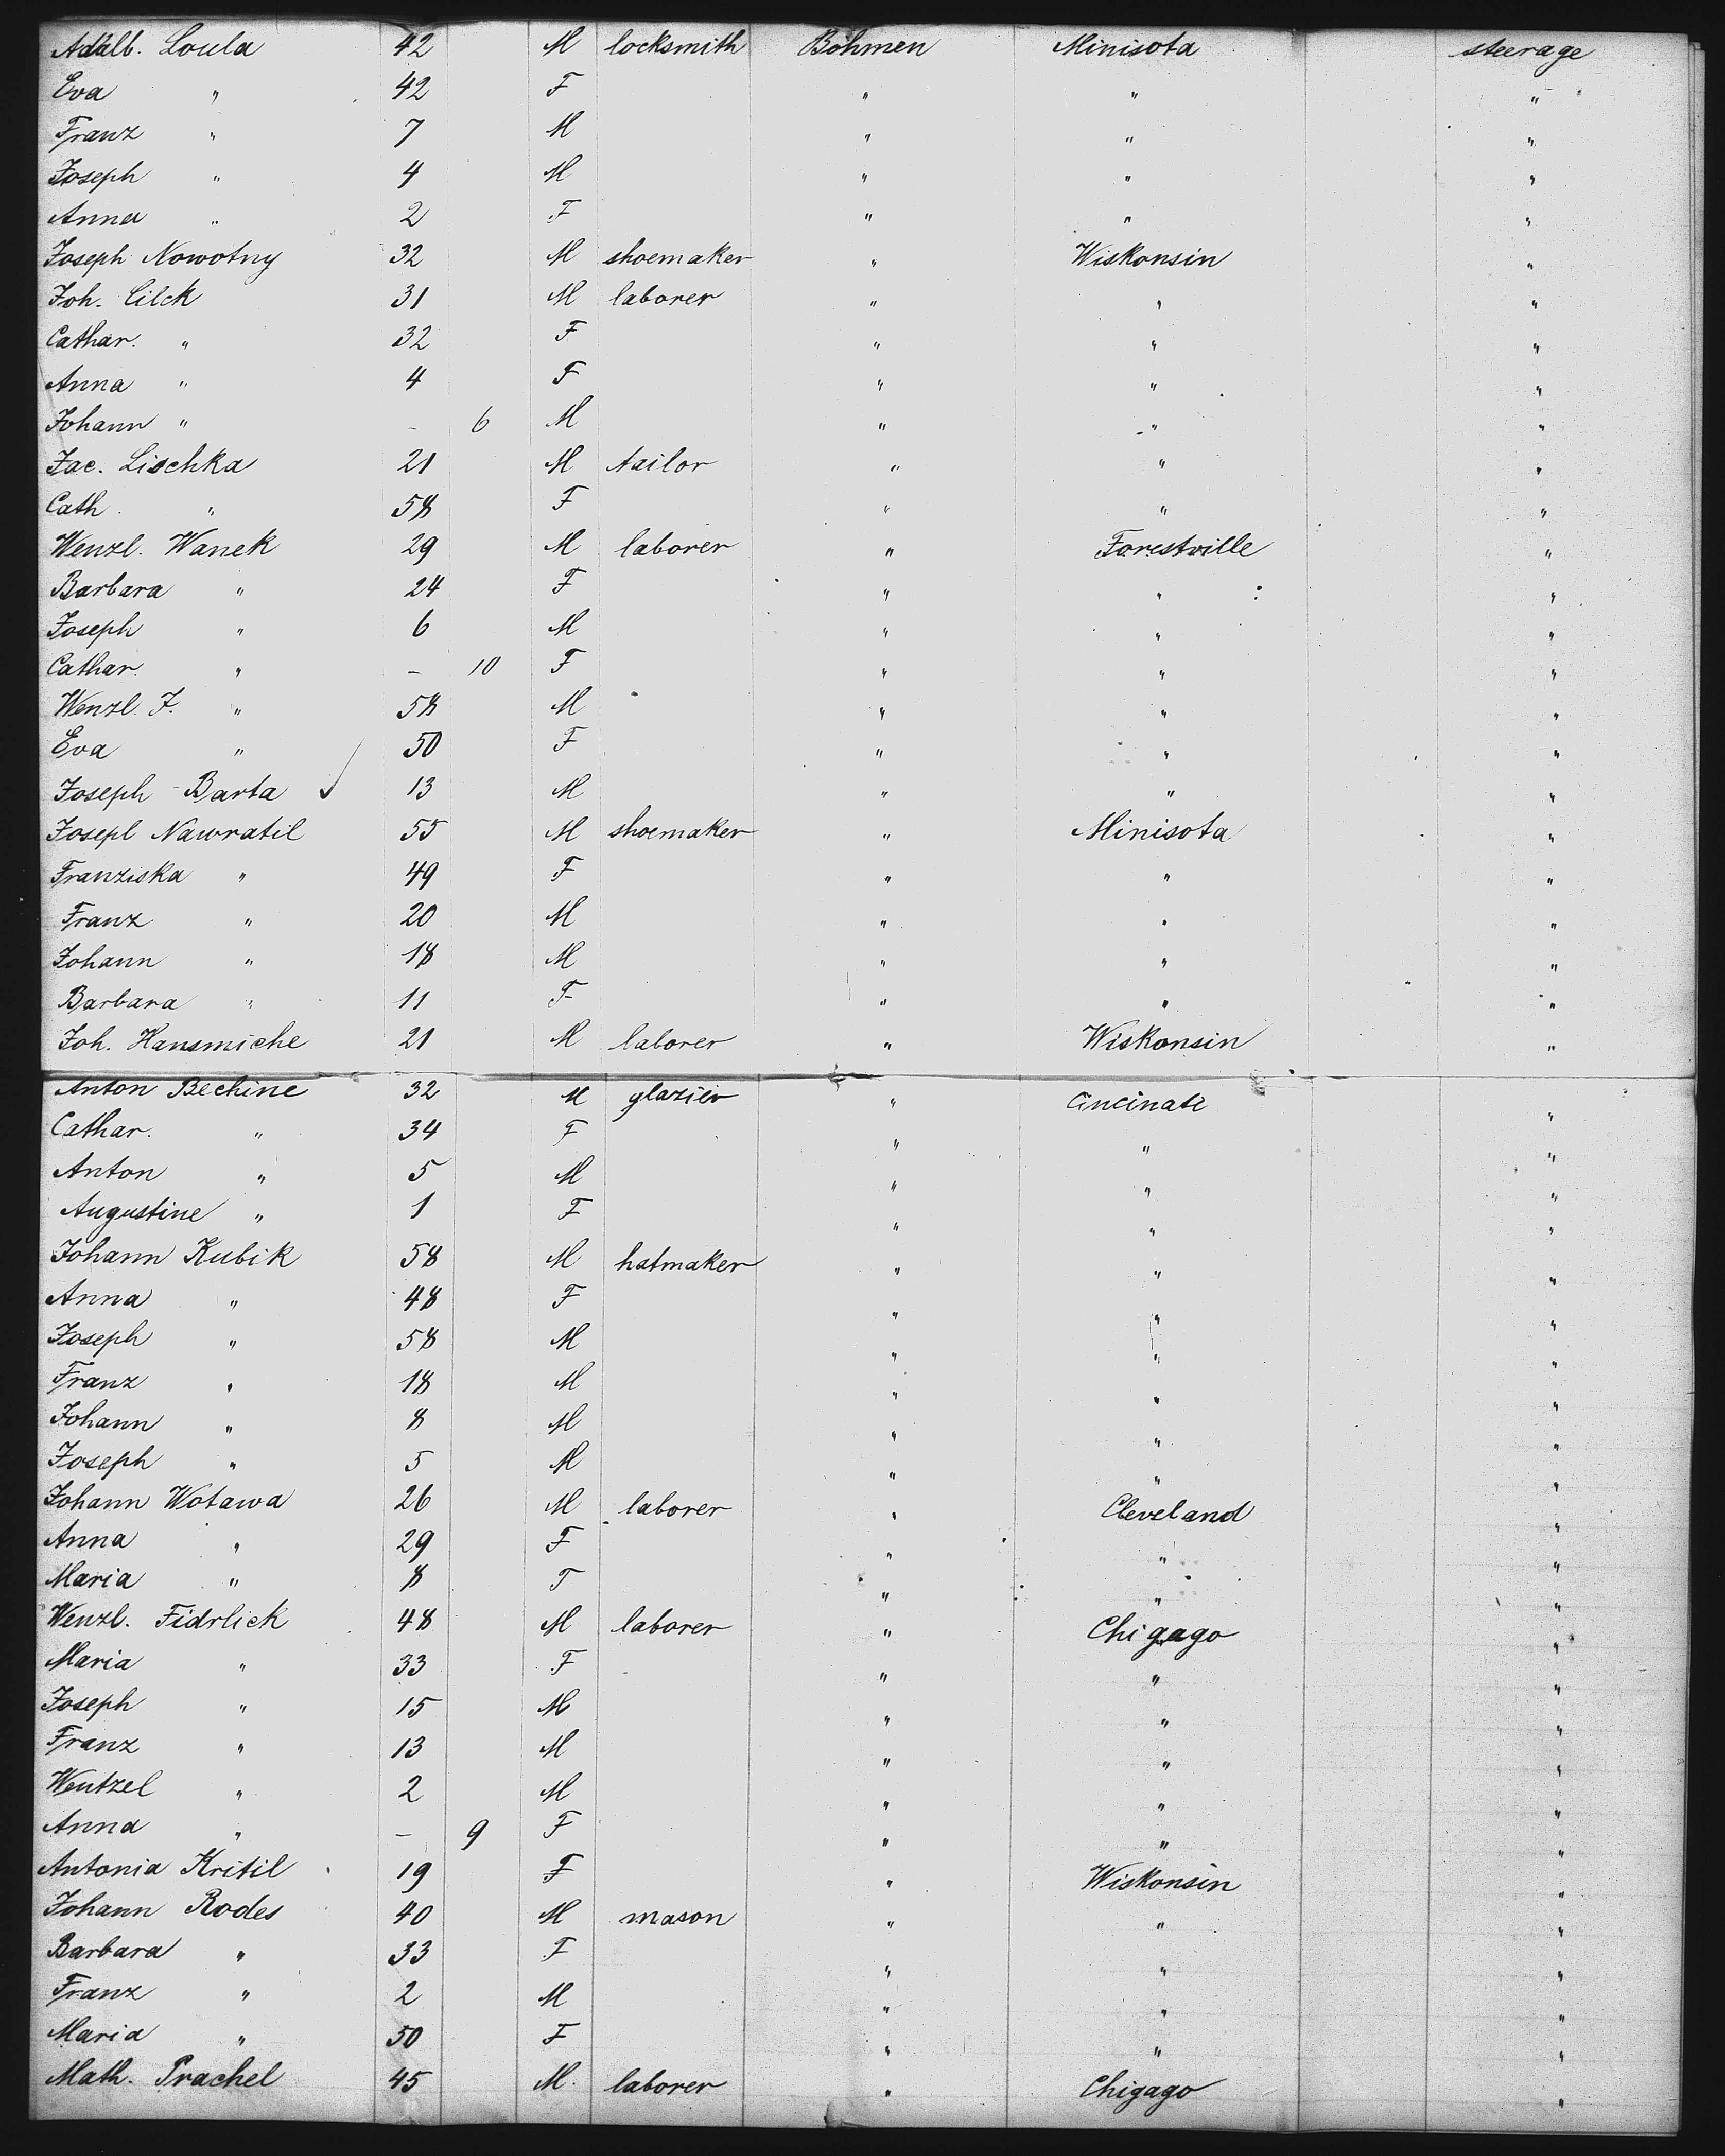 Adalb. Loula 42 M locksmith Böhmen Minisota steerage
Eva " 42 F " " "
Franz " 7 M " " "
Joseph " 4 M " " "
Anna " 2 F " " "
Joseph Nowotny 32 M shoemaker " Wiskonsin "
Joh. Cilck 31 M laborer " " "
Cathar. " 32 F " " "
Anna " 4 F " " "
Johann " - 6 M " " "
Jac. Lischka 21 M tailor " " "
Cath. " 58 F " " "
Wenzl. Wanek 29 M laborer " Forestville "
Barbara " 24 F " " "
Joseph " 6 M " " "
Cathar. " - 10 F " " "
Wenzl. J. " 58 M " " "
Eva " 50 F " " "
Joseph Barta ✓ 13 M " " "
Josepl Nawratil 55 M shoemaker " Minisota "
Franziska " 49 F " " "
Franz " 20 M " " "
Johann " 18 M " " "
Barbara " 11 F " " "
Joh. Hansmiche 21 M laborer " Wiskonsin "
Anton Bechine 32 M glazier " Cincinati "
Cathar. " 34 F " " "
Anton " 5 M " " "
Augustine " 1 F " " "
Johann Kubik 58 M hatmaker " " "
Anna " 48 F " " "
Joseph " 58 M " " "
Franz " 18 M " " "
Johann " 8 M " " "
Joseph " 5 M " " "
Johann Wotawa 26 M laborer " Cleveland "
Anna " 29 F " " "
Maria " 8 F " " "
Wenzl. Fidrlick 48 M laborer " Chigago "
Maria " 33 F " " "
Joseph " 15 M " " "
Franz " 13 M " " "
Wentzel " 2 M " " "
Anna " - 9 F " " "
Antonia Kritil 19 F " Wiskonsin "
Johann Rodes 40 M mason " " "
Barbara " 33 F " " "
Franz " 2 M " " "
Maria " 50 F " " "
Math. Prachel 45 M. laborer " Chigago "